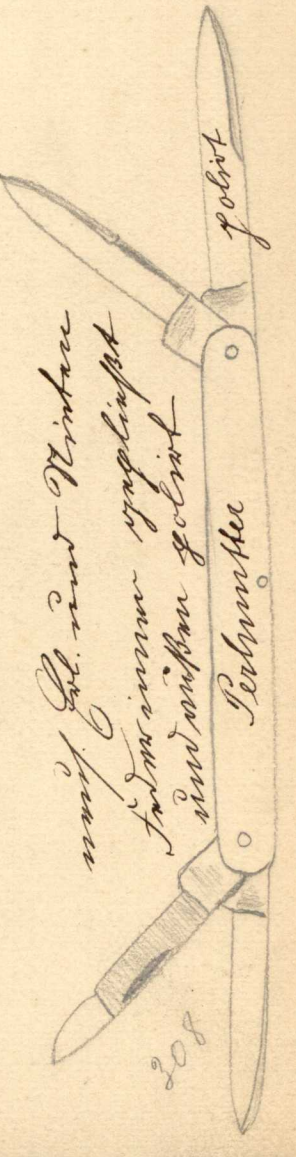 und Nieten
Feder innen gepließt
und außen polirt
Perlmutter
polirt
308